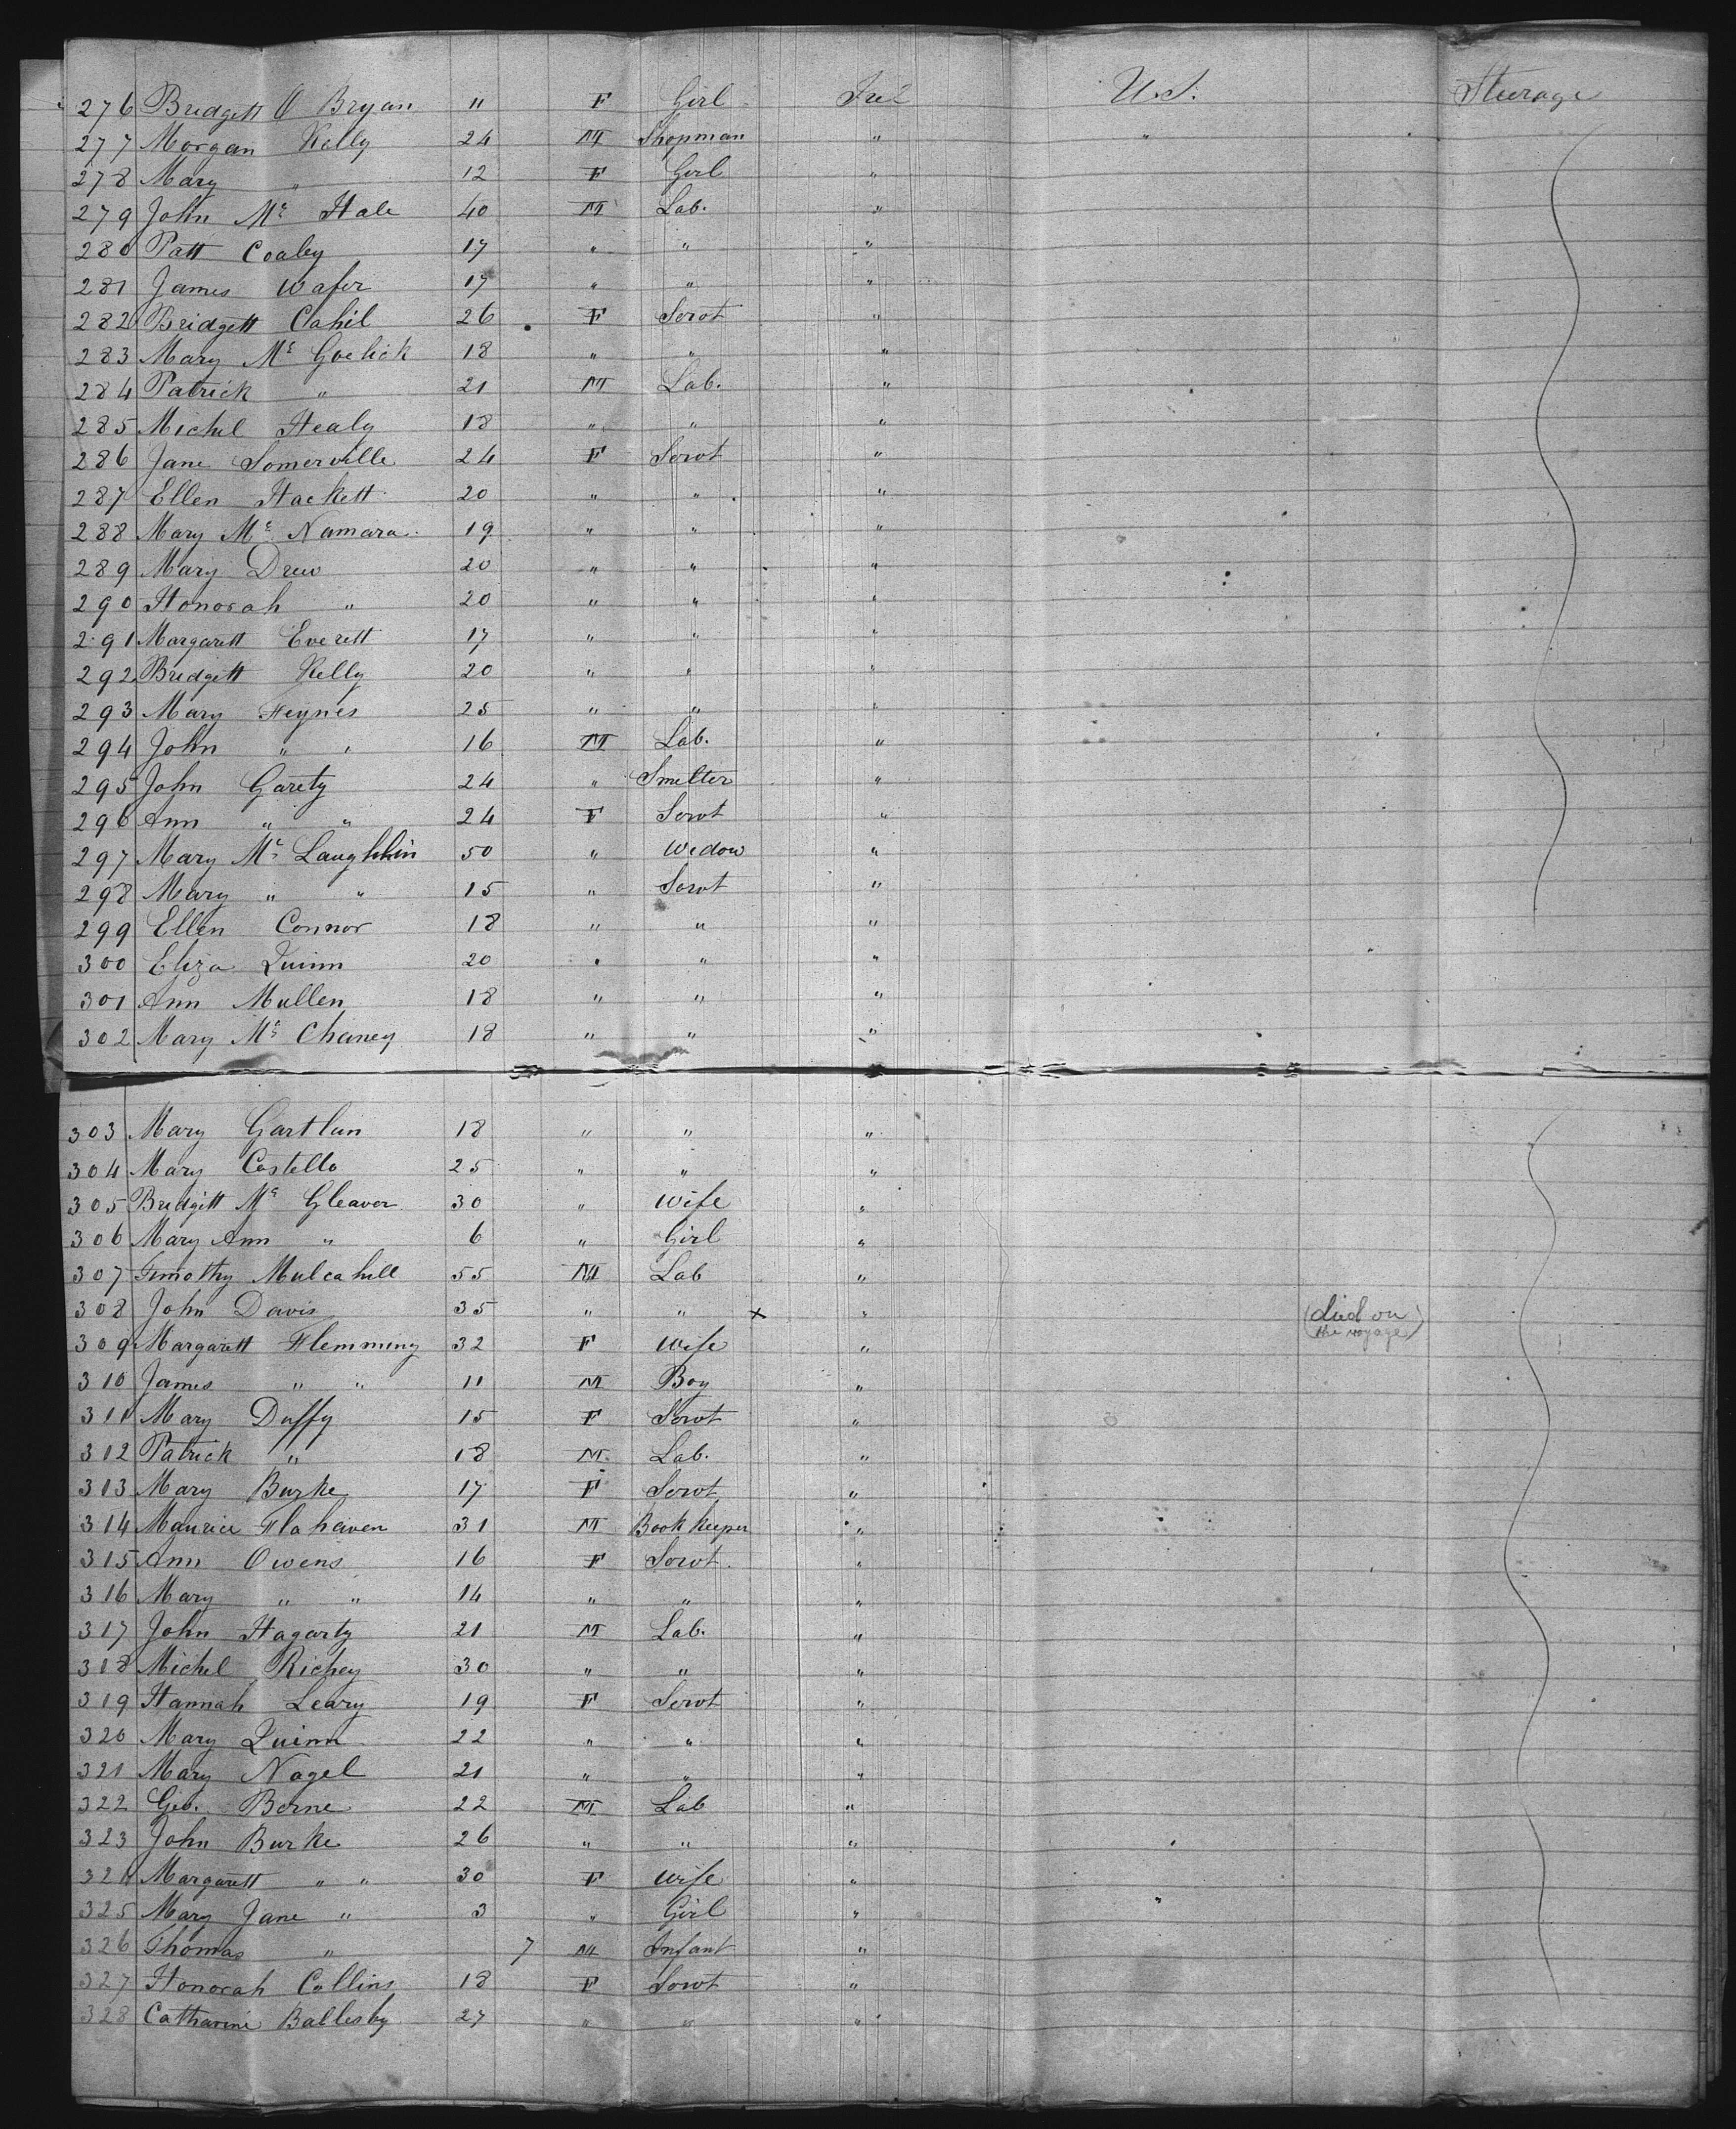 276 Bridgett O Bryan " F Girl Irel U.S. Steerage
277 Morgan Kelly 24 M Shopman " "
278 Mary " 12 F Girl "
279 John Mc Hale 40 M Lab. "
280 Patt Coaley 17 " " "
281 James Wafer 17 " " "
282 Bridgett Cahil 26 F Servt "
283 Mary Mc Goelick 18 " " "
284 Patrick " 21 M Lab. "
285 Michel Healy 18 " " "
286 Jane Somerville 24 F Servt "
287 Ellen Hackett 20 " " "
288 Mary Mc Namara 19 " " "
289 Mary Drew 20 " " "
290 Honorah " 20 " " "
291 Margarett Everett 17 " " "
292 Bridgett Kelly 20 " " "
293 Mary Feynes 25 " " "
294 John " " 16 M Lab. "
295 John Garety 24 " Smelter "
296 Ann " " 24 F Servt "
297 Mary Mc Laughhlin 50 " Widow "
298 Mary " " 15 " Servt "
299 Ellen Connor 18 " " "
300 Eliza Quinn 20 " " "
301 Ann Mullen 18 " " "
302 Mary Mc Chaney 18 " " "
303 Mary Gartlan 18 " " "
304 Mary Costello 25 " " "
305 Bridgett Mc Gleaver 30 " Wife "
306 Mary Ann " 6 " Girl "
307 Timothy Mulcahill 55 M Lab "
308 John Davis 35 " " x " (died on the voyage)
309 Margarett Flemming 32 F Wife "
310 James " " 11 M Boy "
311 Mary Duffy 15 F Servt "
312 Patrick " 18 M Lab. "
313 Mary Burke 17 F Servt "
314 Maurice Flahaven 31 M Book keeper "
315 Ann Owens 16 F Servt "
316 Mary " " 14 " " "
317 John Hagarty 21 M Lab. "
318 Michel Richey 30 " " "
319 Hannah Leary 19 F Servt "
320 Mary Quinn 22 " " "
321 Mary Nagel 21 " " "
322 Geo. Berne 22 M Lab "
323 John Burke 26 " " "
324 Margarett " " 30 F Wife "
325 Mary Jane " 3 " Girl " "
326 Thomas " 7 M Infant "
327 Honorah Collins 18 F Servt "
328 Catharine Ballesby 27 " " "